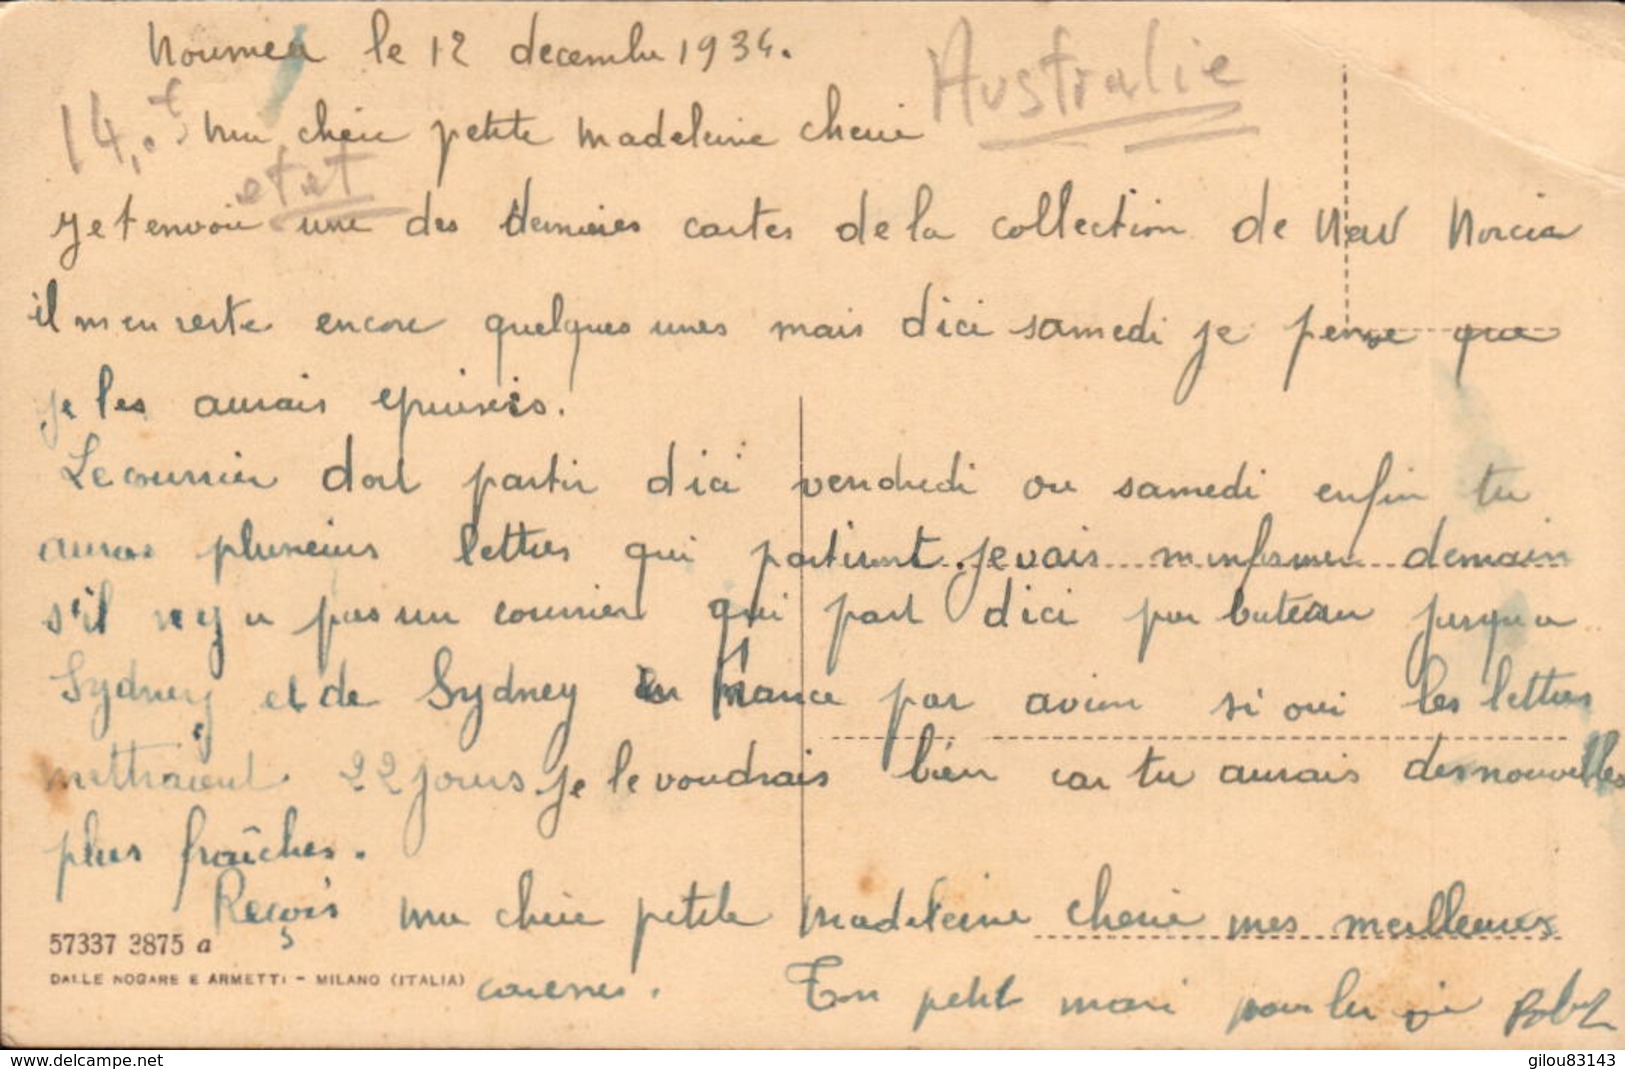 Noumea le 12 decembre 1934.
Australie
14,
ma cheie petite Madeleine cherie
etat
Je t envoie une des dernieres cartes de la collection de New Norcia
il m en reste encore quelques unes mais d ici samedi je pense que
je les aurais epuisés.
Le courrier doit partir d ici vendredi ou samedi enfin tu
auras plusieurs lettres qui partiront. Je vais m informer demain
s'il n y a pas un courrier qui part d ici par bateau jusqu a
Sydney et de Sydney en France par avion si oui les lettres
mettraient 22 jours. Je le voudrais bien car tu aurais des nouvelles
plus fraîches.
Reçois ma cheie petite Madeleine cherie mes meilleures
57337 3875 a
DALLE NOGARE E ARMETTI - MILANO (ITALIA)
caresses.
Ton petit mari pour la vie
www.delcampe.net
gilou83143